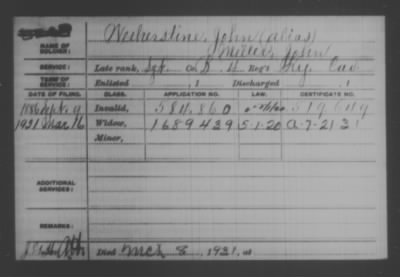 Weiherstine, John (alias)
NAME OF SOLDIER: Miller, John
SERVICE: Late rank, Sgt. Co. D, 4 Reg't Ky. Cav.
TERM OF SERVICE: Enlisted , 1 Discharged , 1
DATE OF FILING. CLASS. APPLICATION NO. LAW. CERTIFICATE NO.
1886 Sept. 9 Invalid, 584,860
1931 Mar 16 Widow, 1689439 5-1-20 A-7-21-31
Minor,
ADDITIONAL SERVICES:
REMARKS:
Died Mch 8, 1931, at